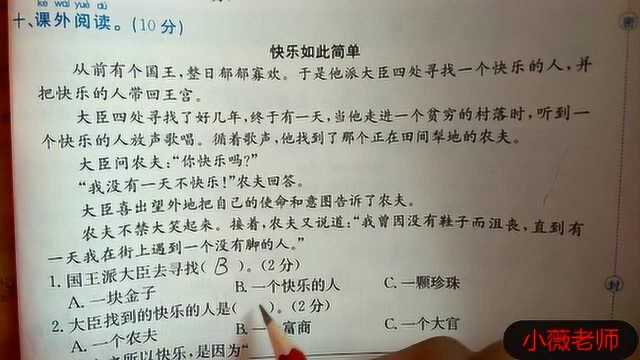 kè wài yuè dú
十、课外阅读。(10分)
快乐如此简单
从前有个国王,整日郁郁寡欢。于是他派大臣四处寻找一个快乐的人,并
把快乐的人带回王宫。
大臣四处寻找了好几年,终于有一天,当他走进一个贫穷的村落时,听到一
个快乐的人放声歌唱。循着歌声,他找到了那个正在田间犁地的农夫。
大臣问农夫:“你快乐吗?”
“我没有一天不快乐!”农夫回答。
大臣喜出望外地把自己的使命和意图告诉了农夫。
农夫不禁大笑起来。接着,农夫又说道:“我曾因没有鞋子而沮丧,直到有
一天我在街上遇到一个没有脚的人。”
1. 国王派大臣去寻找( B )。(2分)
A. 一块金子 B. 一个快乐的人 C. 一颗珍珠
2. 大臣找到的快乐的人是( )。(2分)
A. 一个农夫 B. 一 富商 C. 一个大官
所以快乐,是因为“
封
小薇老师